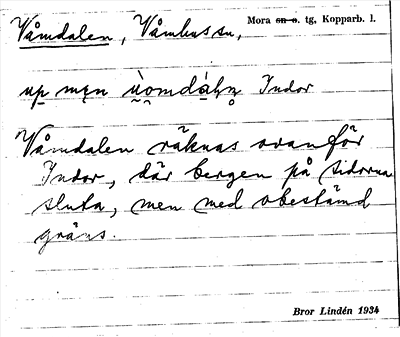 Våmdalen, Våmhus sn, Mora sn o. tg, Kopparb. l.
up men ùomdáln Indor
Våmdalen räknas ovanför
Indor, där bergen på sidorna
sluta, men med obestämd
gräns.
Bror Lindén 1934